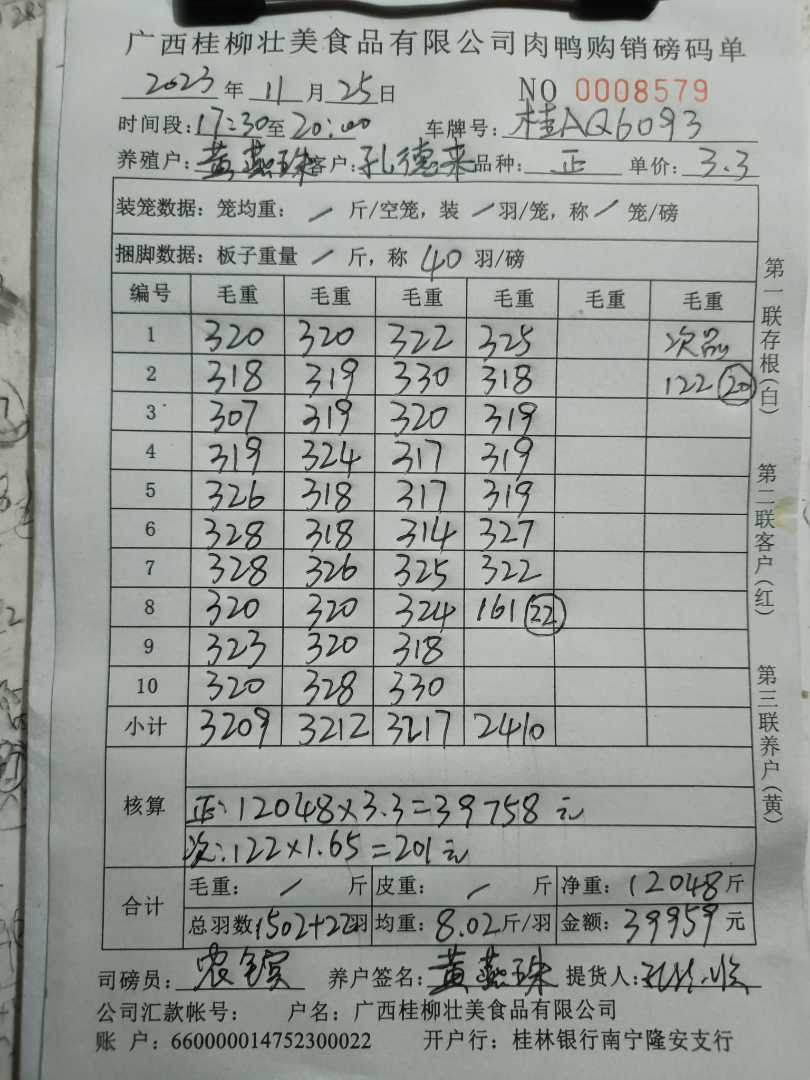 广西桂柳壮美食品有限公司肉鸭购销磅码单
2023年11月25日 NO 0008579
时间段:17:30至20:00 车牌号:桂AQ6093
养殖户:黄燕珠 客户:孔德来 品种:正 单价:3.3
装笼数据:笼均重: / 斤/空笼,装 / 羽/笼,称 / 笼/磅
捆脚数据:板子重量 / 斤,称 40 羽/磅
编号 毛重 毛重 毛重 毛重 毛重 毛重
1 320 320 322 325 次品
2 318 319 330 318 122 20
3 307 319 320 319
4 319 324 317 319
5 326 318 317 319
6 328 318 314 327
7 328 326 325 322
8 320 320 324 161 22
9 323 320 318
10 320 328 330
小计 3209 3212 3217 2410
核算
正:12048×3.3=39758元
次:122×1.65=201元
合计
毛重: / 斤 皮重: / 斤 净重:12048斤
总羽数1502+22羽 均重:8.02斤/羽 金额:39959元
司磅员: 养户签名:黄燕珠 提货人:
公司汇款帐号: 户名:广西桂柳壮美食品有限公司
账 户:660000014752300022 开户行:桂林银行南宁隆安支行
第一联存根(白)
第二联客户(红)
第三联养户(黄)